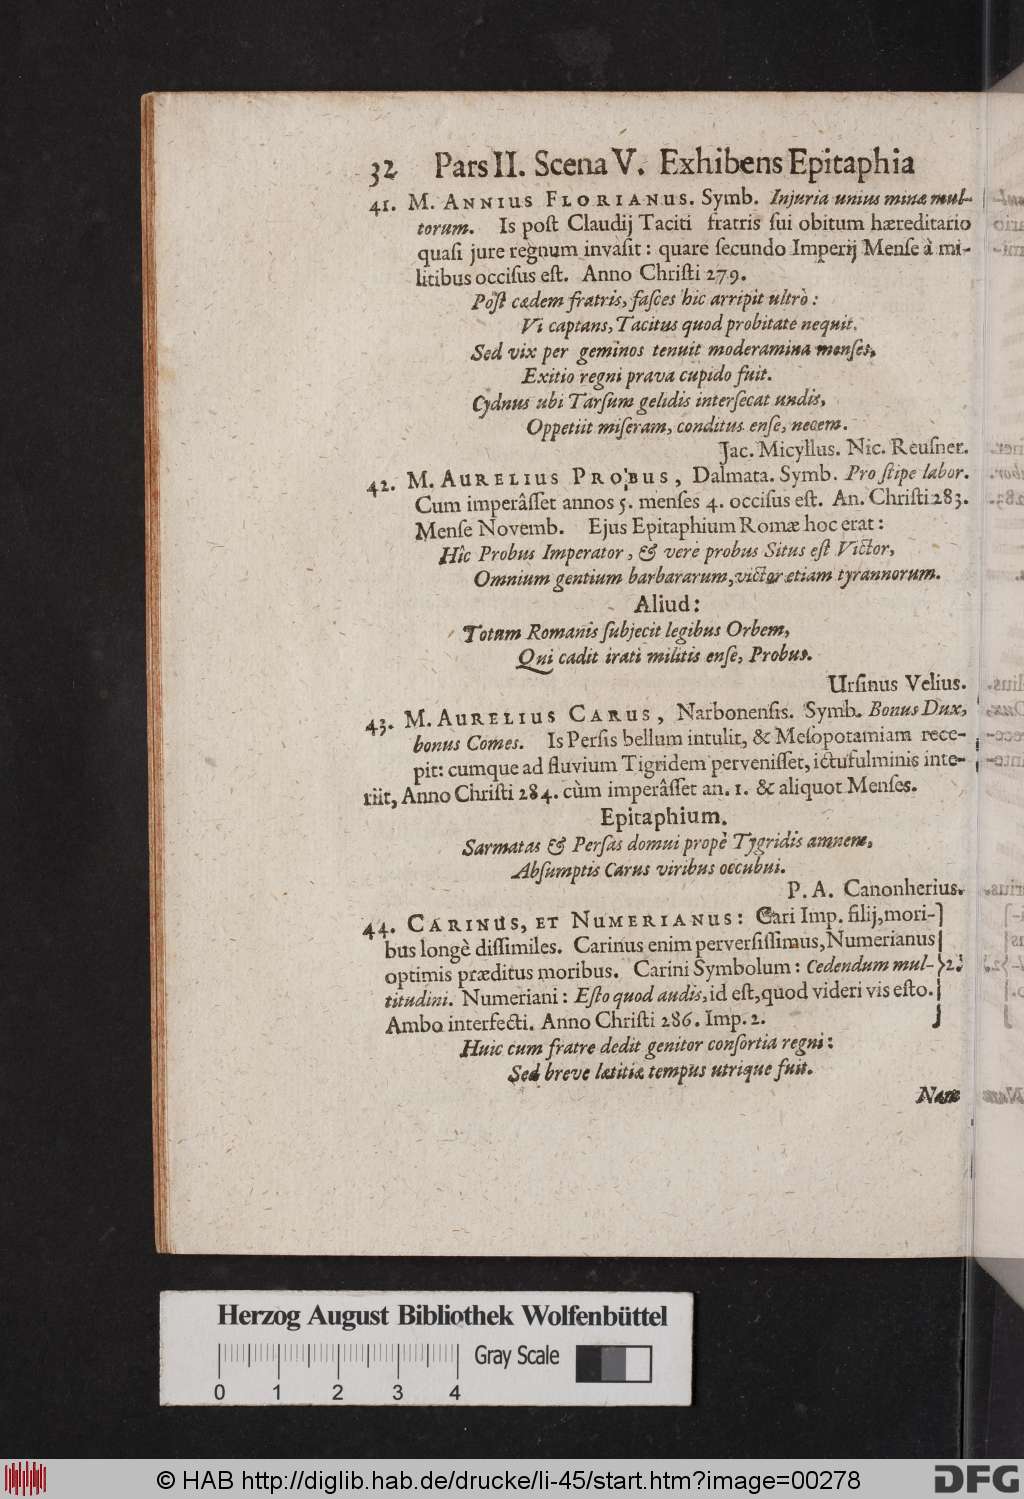 32 Pars II. Scena V. Exhibens Epitaphia
41. M. ANNIUS FLORIANUS. Symb. Injuria unius minæ mul-
torum. Is post Claudij Taciti fratris sui obitum hæreditario
quasi jure regnum invasit: quare secundo Imperij Mense à mi-
litibus occisus est. Anno Christi 279.
Post cædem fratris, fasces hic arripit ultrò:
Vi captans, Tacitus quod probitate nequit.
Sed vix per geminos tenuit moderamina menses,
Exitio regni prava cupido fuit.
Cydnus ubi Tarsum gelidis intersecat undis,
Oppetiit miseram, conditus ense, necem.
Jac. Micyllus. Nic. Reusner.
42. M. AURELIUS PROBUS, Dalmata. Symb. Pro stipe labor.
Cum imperâsset annos 5. menses 4. occisus est. An. Christi 283.
Mense Novemb. Ejus Epitaphium Romæ hoc erat:
Hîc Probus Imperator, & verè probus Situs est Victor,
Omnium gentium barbararum, victor etiam tyrannorum.
Aliud:
Totum Romanis subjecit legibus Orbem,
Qui cadit irati militis ense, Probus.
Ursinus Velius.
43. M. AURELIUS CARUS, Narbonensis. Symb. Bonus Dux,
bonus Comes. Is Persis bellum intulit, & Mesopotamiam rece-
pit: cumque ad fluvium Tigridem pervenisset, ictu fulminis inte-
riit, Anno Christi 284. cùm imperâsset an. 1. & aliquot Menses.
Epitaphium.
Sarmatas & Persas domui propè Tygridis amnem,
Absumptis Carus viribus occubui.
P. A. Canonherius.
44. CARINUS, ET NUMERIANUS: Cari Imp. filij, mori-
bus longè dissimiles. Carinus enim perversissimus, Numerianus
optimis præditus moribus. Carini Symbolum: Cedendum mul- 2.
titudini. Numeriani: Esto quod audis, id est, quod videri vis esto.
Ambo interfecti. Anno Christi 286. Imp. 2.
Huic cum fratre dedit genitor consortia regni:
Sed breve lætitiæ tempus utrique fuit.
Nam
Herzog August Bibliothek Wolfenbüttel
Gray Scale
0 1 2 3 4
© HAB http://diglib.hab.de/drucke/li-45/start.htm?image=00278
DFG